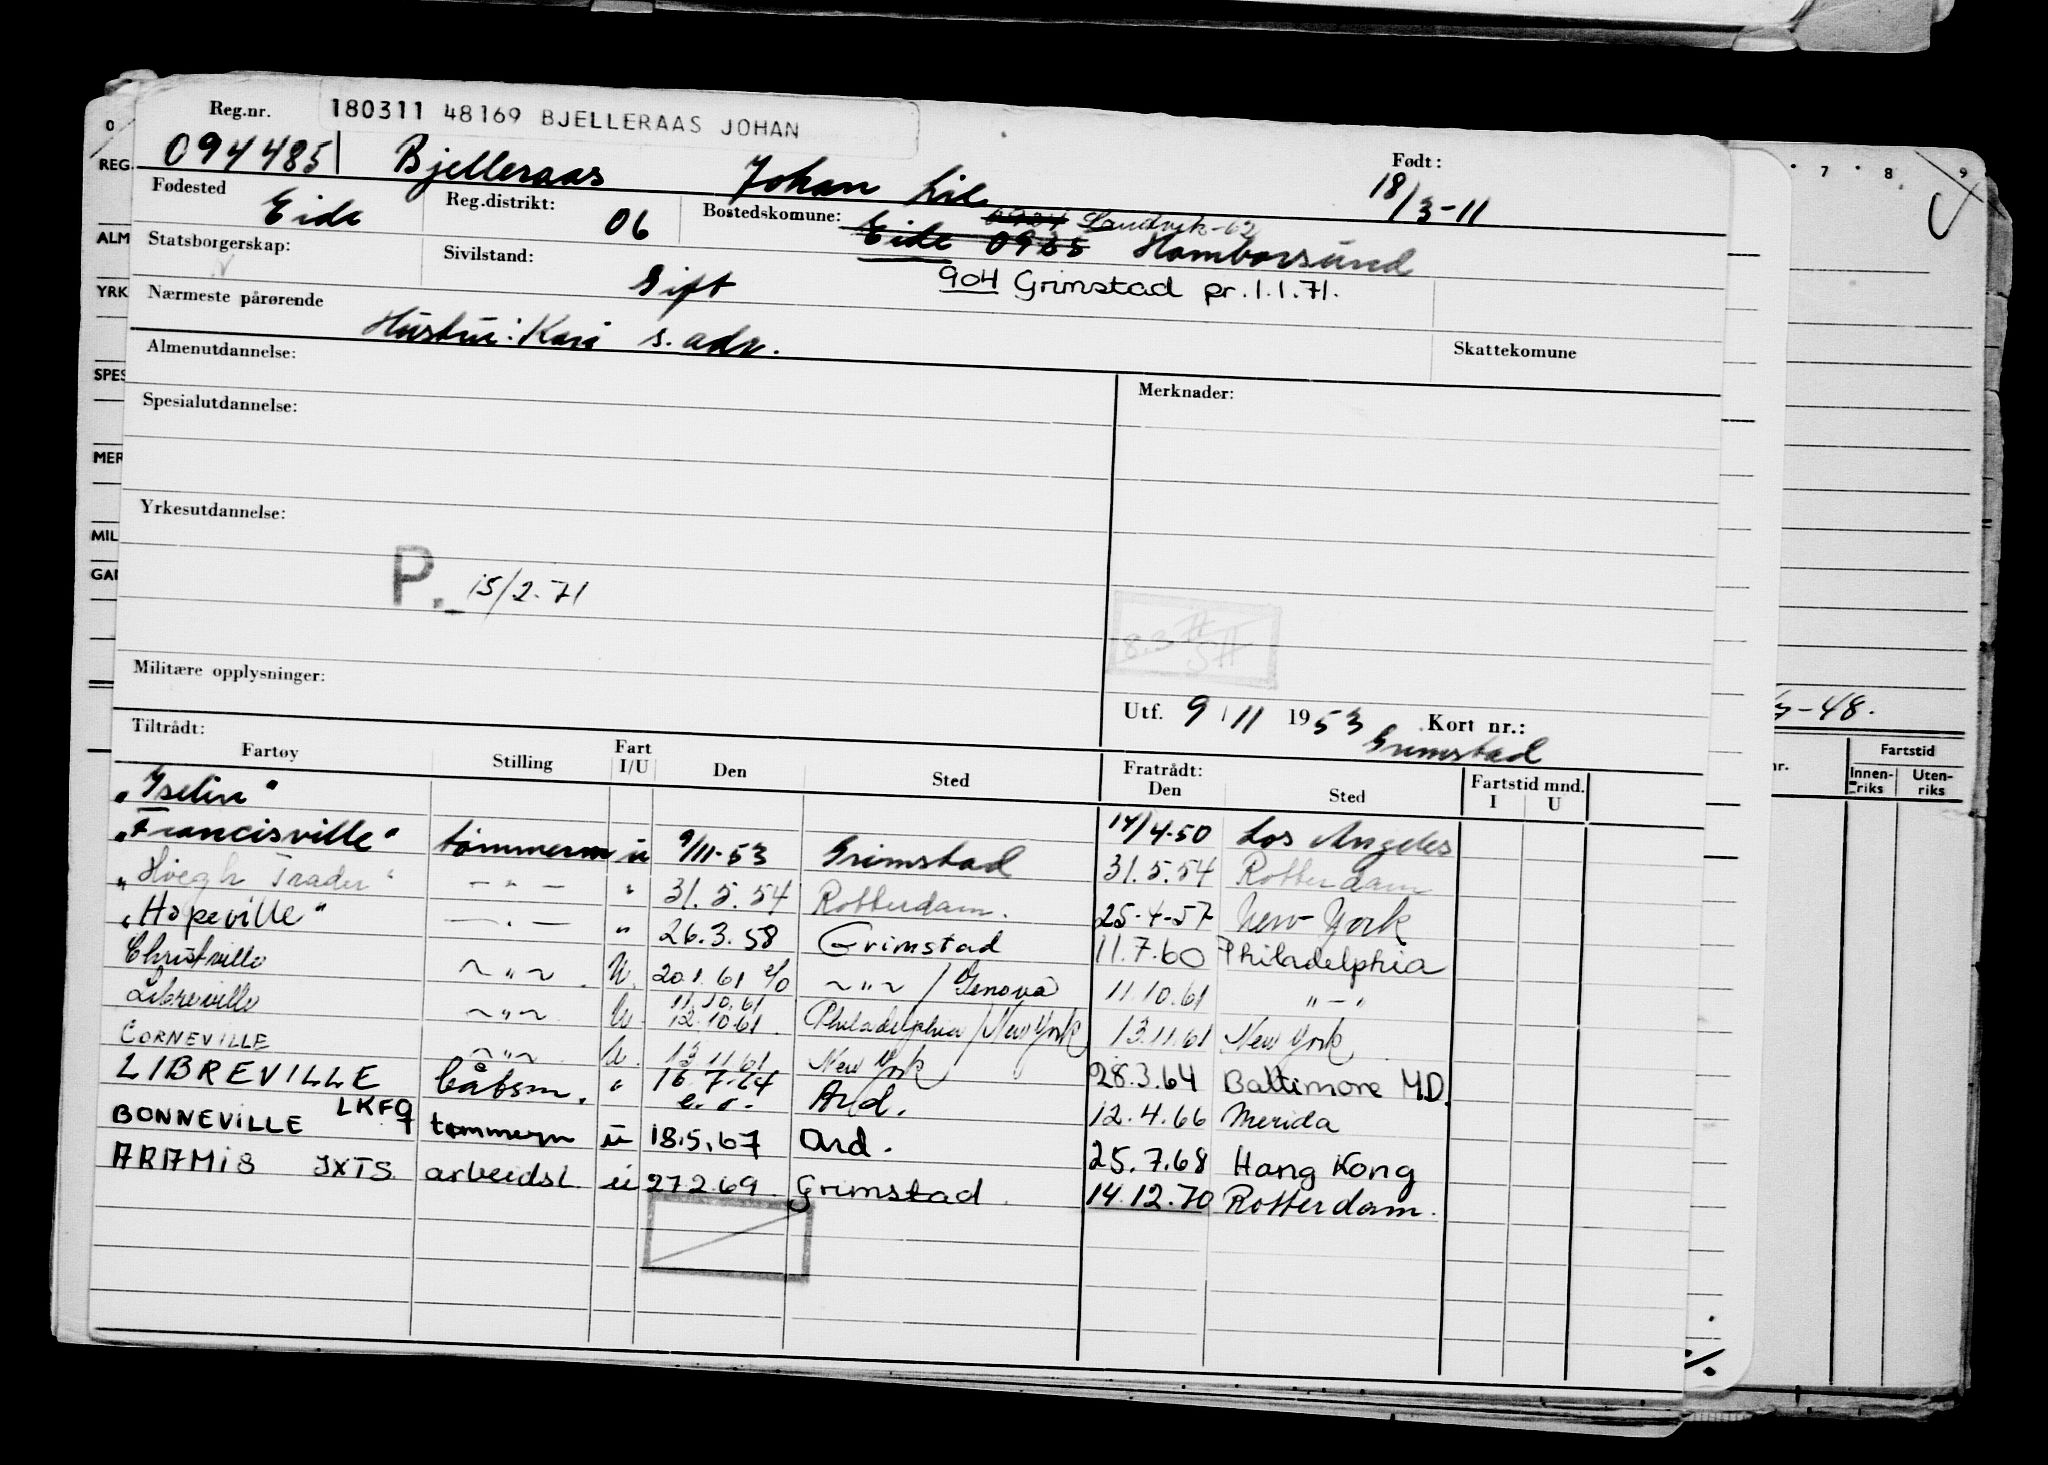 Reg.nr. 180311 48169 BJELLERAAS JOHAN
094485 Bjelleraas Johan Født: 18/3-11
Fødested Eide Reg.distrikt: 06 Bostedskomune: Eide 0925 Homborsund
Landvik-62
904 Grimstad pr. 1.1.71.
Statsborgerskap: Sivilstand: Gift
Nærmeste pårørende Hustru: Kari s. adr.
Skattekomune
Almenutdannelse:
Merknader:
Spesialutdannelse:
Yrkesutdannelse:
P. 15/2-71
Militære opplysninger:
Utf. 9/11 1953 Kort nr.:
Grimstad
Tiltrådt: Fratrådt: Fartstid mnd.
Fartøy Stilling Fart I/U Den Sted Den Sted I U
"Iselin" 14/4-50 Los Angeles
"Francisville" tømmerm u 9/11-53 Grimstad 31.5.54 Rotterdam
"Høegh Trader" -"- " 31.5.54 Rotterdam. 25-4-57 New York
"Hopeville" -"- " 26.3.58 Grimstad 11.7.60 Philadelphia
Christville ~"~ U. 20.1.61 ~"~ / Genova 11.10.61 "-"
11.10.61
Libreville ~"~ U. 12.10.61. Philadelphia / New York 13.11.61 New York
CORNEVILLE ~"~ U. 13.11.61 New York 28.3.64 Baltimore M.D.
LIBREVILLE båtsm. " 16.7.64 e.o. And. 12.4.66 Merida
BONNEVILLE LKFQ tømmerm u 18.5.67 And. 25.7.68 Hong Kong
ARAMIS JXTS. arbeidsl. u 27.2.69 Grimstad. 14.12.70 Rotterdam.
0
REG.
ALM
YRK
SPES
MER
MIL
7 8 9
-48.
nr. Fartstid
Innen-riks Uten-riks